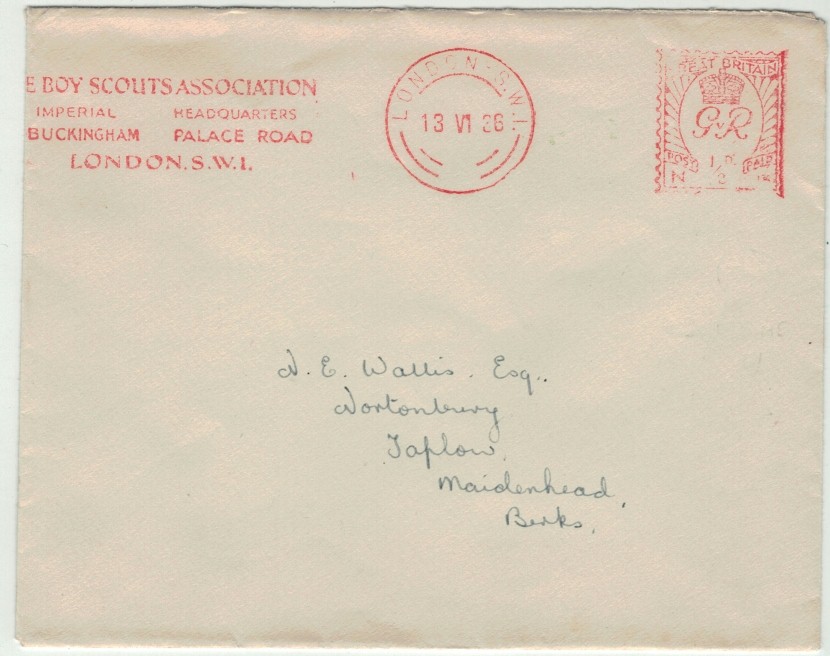 E BOY SCOUTS ASSOCIATION
IMPERIAL HEADQUARTERS
BUCKINGHAM PALACE ROAD
LONDON. S.W.1.
LONDON. S.W.1.
13 VI 36
EST BRITAIN
G V R
POST 1/2 D. PAID
N
N. E. Wallis. Esq..
Nortonbury
Taplow,
Maidenhead,
Berks,